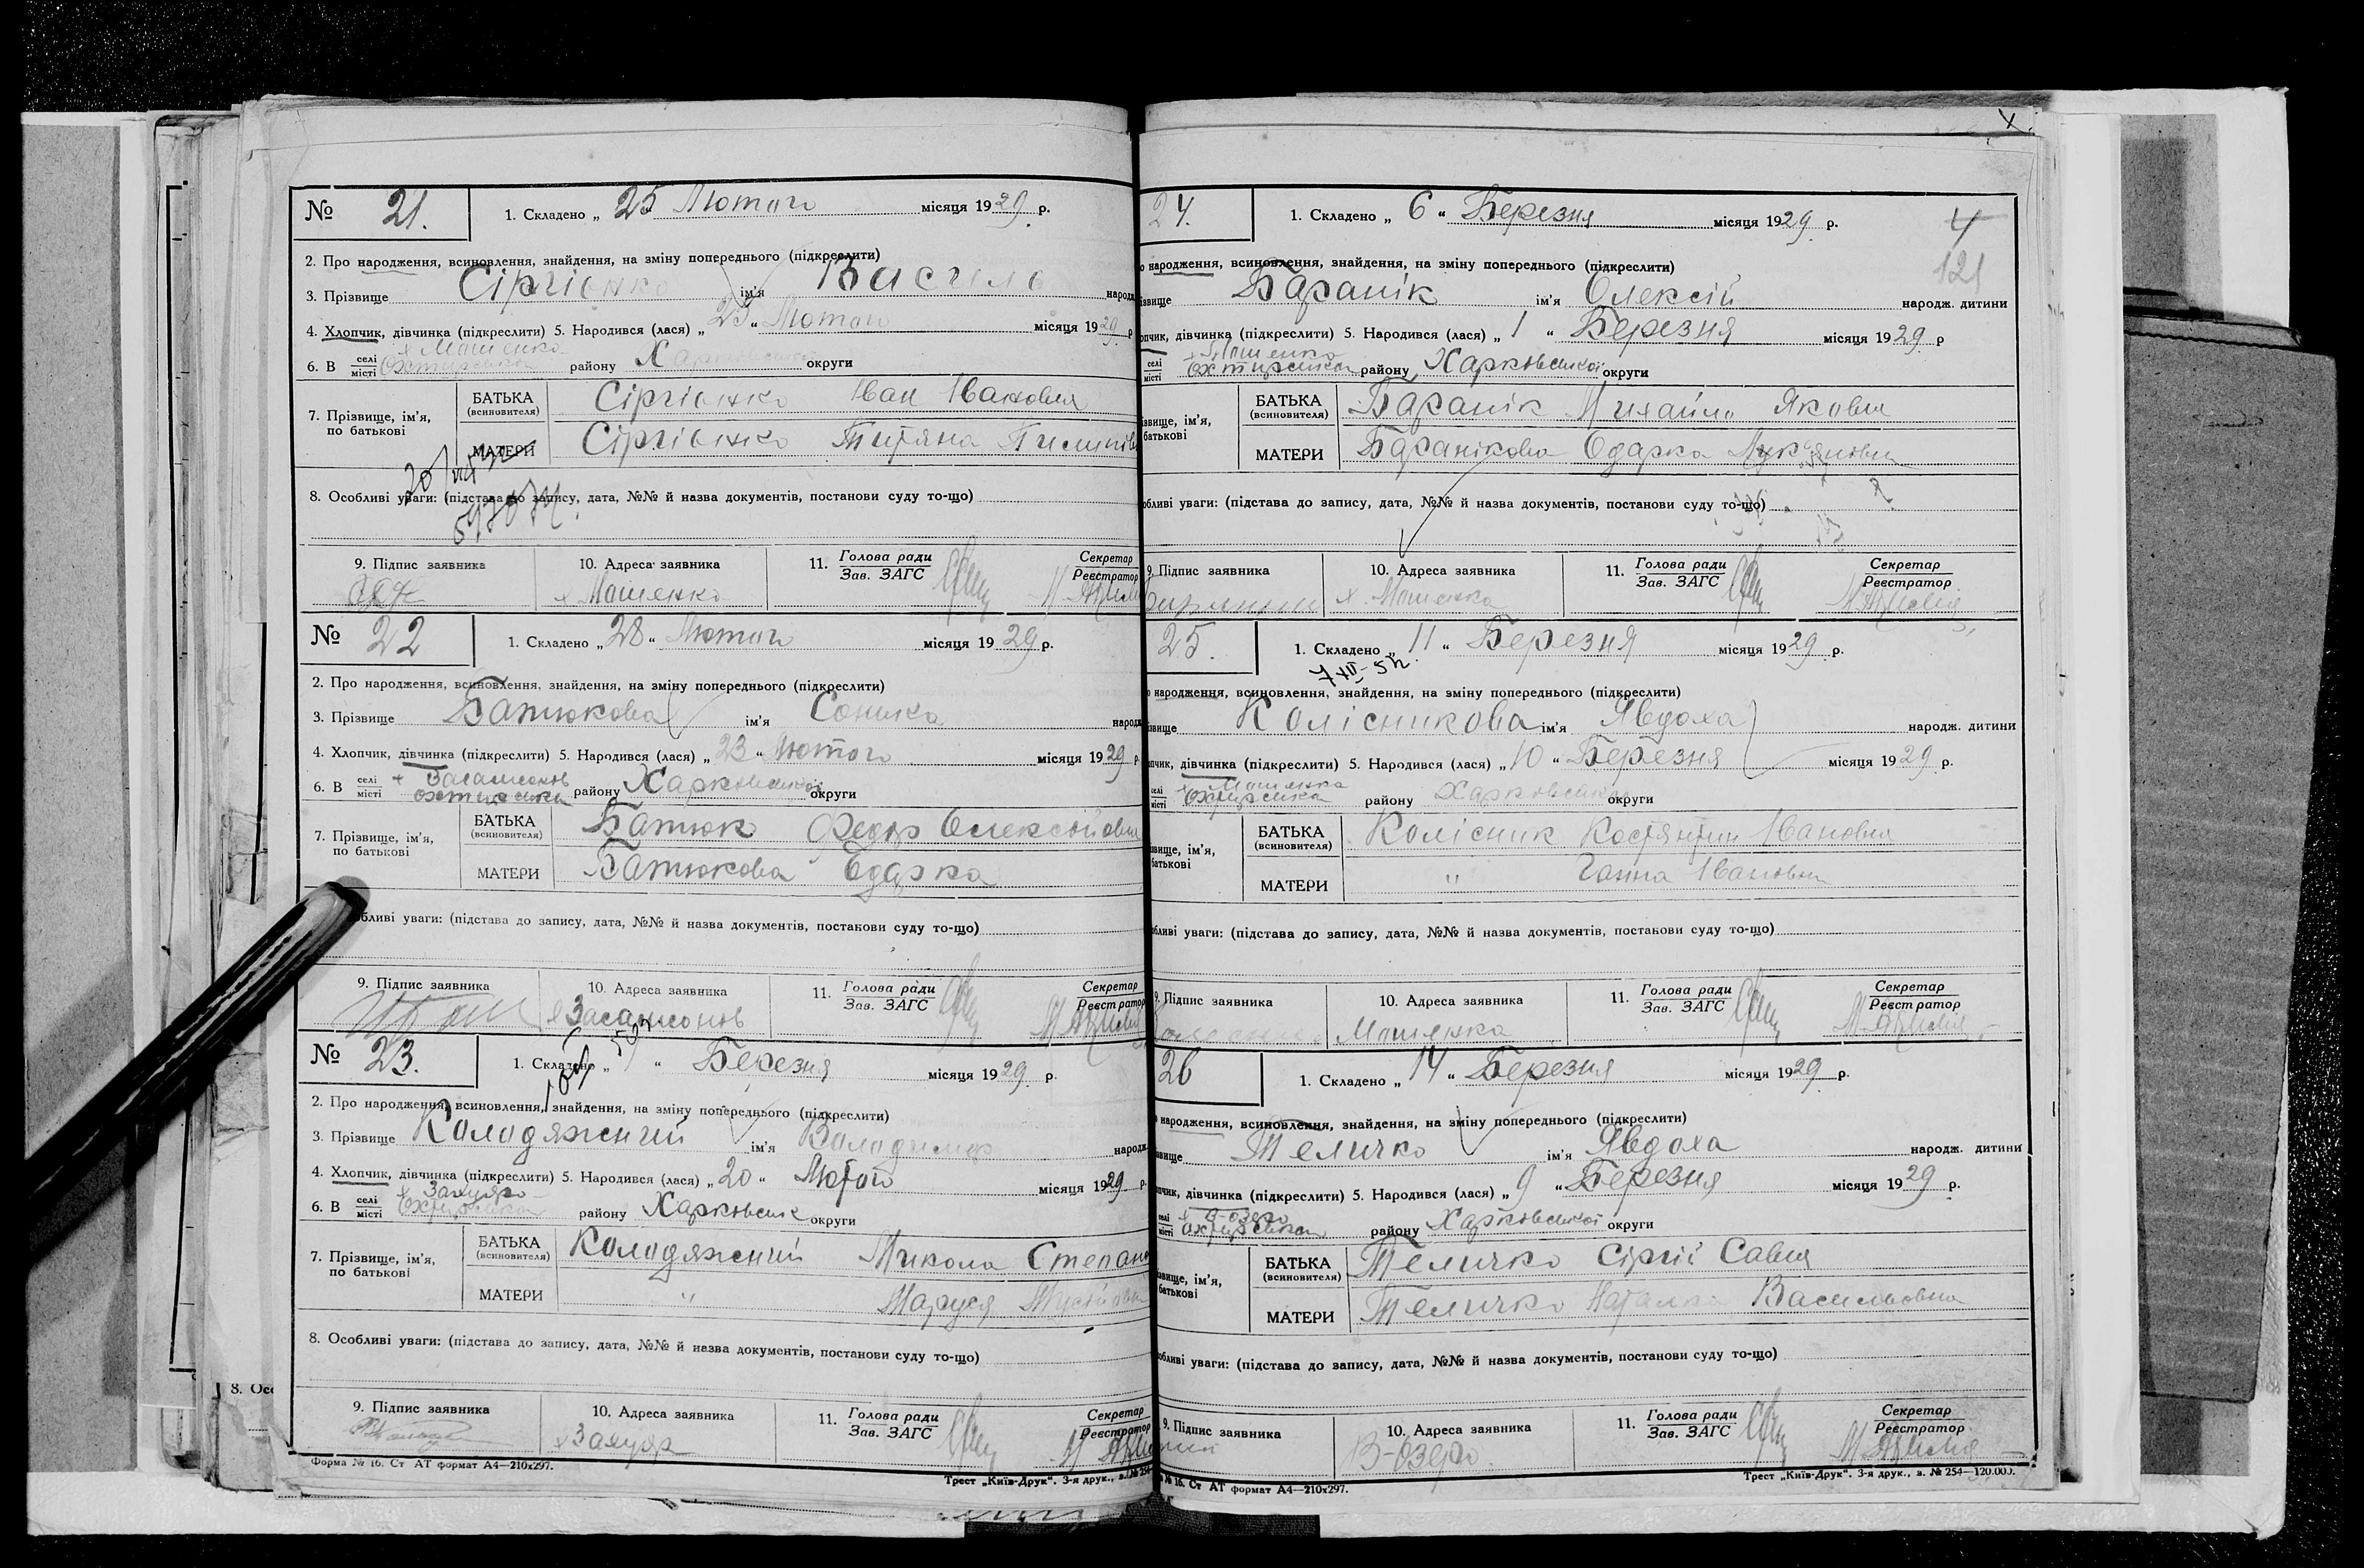 № 21. 1. Складено „ 25 Лютого місяця 1929 р.
2. Про народження, всиновлення, знайдення, на зміну попереднього (підкреслити)
3. Прізвище Сіргіэнко ім'я Василь народж
4. Хлопчик, дівчинка (підкреслити) 5. Народився (лася) „ 23 “ Лютого місяця 1929 р
6. В селі місті х Мошенко Охтирська району Харковської округи
7. Прізвище, ім'я, по батькові
БАТЬКА (всиновителя) Сіргіэнко Іван Іванович
МАТЕРИ Сіргіэнко Титяна
8. Особливі уваги: (підстава до запису, дата, №№ й назва документів, постанови суду то-що)
9. Підпис заявника 10. Адреса заявника 11. Голова ради Зав. ЗАГС Секретар Реєстратор
х Мошенко
№ 22 1. Складено „ 28 “ Лютого місяця 1929 р.
2. Про народження, всиновлення, знайдення, на зміну попереднього (підкреслити)
3. Прізвище Батюкова ім'я Сонька народж
4. Хлопчик, дівчинка (підкреслити) 5. Народився (лася) „ 23 “ Лютого місяця 1929 р.
6. В селі місті Охтирська району Харковської округи
7. Прізвище, ім'я, по батькові
БАТЬКА (всиновителя) Батюк Федір Олексійович
МАТЕРИ Батюкова Одарка
обливі уваги: (підстава до запису, дата, №№ й назва документів, постанови суду то-що)
9. Підпис заявника 10. Адреса заявника 11. Голова ради Зав. ЗАГС Секретар Реєстратор
№ 23. 1. Складено „ “ Березня місяця 1929 р.
2. Про народження, всиновлення, знайдення, на зміну попереднього (підкреслити)
3. Прізвище Колодяжний ім'я Володимир народж
4. Хлопчик, дівчинка (підкреслити) 5. Народився (лася) „ 20 “ Лютого місяця 1929 р.
6. В селі місті Охтирська району Харковськ округи
7. Прізвище, ім'я, по батькові
БАТЬКА (всиновителя) Колодяжний Микола Степано
МАТЕРИ " Маруся
8. Особливі уваги: (підстава до запису, дата, №№ й назва документів, постанови суду то-що)
9. Підпис заявника 10. Адреса заявника 11. Голова ради Зав. ЗАГС Секретар Реєстратор
Форма № 16. Ст АТ формат А4—210х297.
Трест „Київ-Друк“. 3-я друк., з. № 254
24. 1. Складено „ 6 “ Березня місяця 1929 р.
4
121
народження, всиновлення, знайдення, на зміну попереднього (підкреслити)
звище Баранік ім'я Олексій народж. дитини
опчик, дівчинка (підкреслити) 5. Народився (лася) „ 1 “ Березня місяця 1929 р
селі місті Охтирська району Харковської округи
звище, ім'я, батькові
БАТЬКА (всиновителя) Баранік Михайло Якович
МАТЕРИ Баранікова Одарка Лук'яновна
обливі уваги: (підстава до запису, дата, №№ й назва документів, постанови суду то-що)
9. Підпис заявника 10. Адреса заявника 11. Голова ради Зав. ЗАГС Секретар Реєстратор
х. Мошенка
25. 1. Складено „ 11 “ Березня місяця 1929 р.
7 XII-52.
народження, всиновлення, знайдення, на зміну попереднього (підкреслити)
звище Колісникова ім'я Явдоха народж. дитини
пчик, дівчинка (підкреслити) 5. Народився (лася) „ 10 “ Березня місяця 1929 р.
селі місті Мошенка Охтирська району Харковської округи
звище, ім'я, батькові
БАТЬКА (всиновителя) Колісник Костянтин Іванович
МАТЕРИ " Ганна Івановна
обливі уваги: (підстава до запису, дата, №№ й назва документів, постанови суду то-що)
9. Підпис заявника 10. Адреса заявника 11. Голова ради Зав. ЗАГС Секретар Реєстратор
Мошенка
26 1. Складено „ 14 “ Березня місяця 1929 р.
народження, всиновлення, знайдення, на зміну попереднього (підкреслити)
звище Теличко ім'я Явдоха народж. дитини
пчик, дівчинка (підкреслити) 5. Народився (лася) „ 9 “ Березня місяця 1929 р.
селі місті В-озеро Охтирська району Харковської округи
звище, ім'я, батькові
БАТЬКА (всиновителя) Теличко Сіргій Савич
МАТЕРИ Теличко Наталка Васильовна
обливі уваги: (підстава до запису, дата, №№ й назва документів, постанови суду то-що)
9. Підпис заявника 10. Адреса заявника 11. Голова ради Зав. ЗАГС Секретар Реєстратор
В-озеро.
№ 16. Ст АТ формат А4—210х297.
Трест „Київ-Друк“. 3-я друк., з. № 254—120.000.